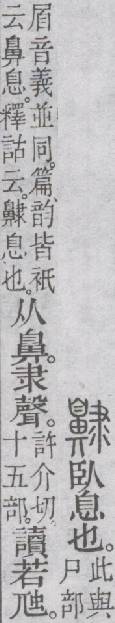 齂臥息也。此與
尸部
㞒音義並同。篇、韵皆祇
云鼻息。釋詁云。齂息也。
从鼻。隶聲。許介切。
十五部。
讀若虺。